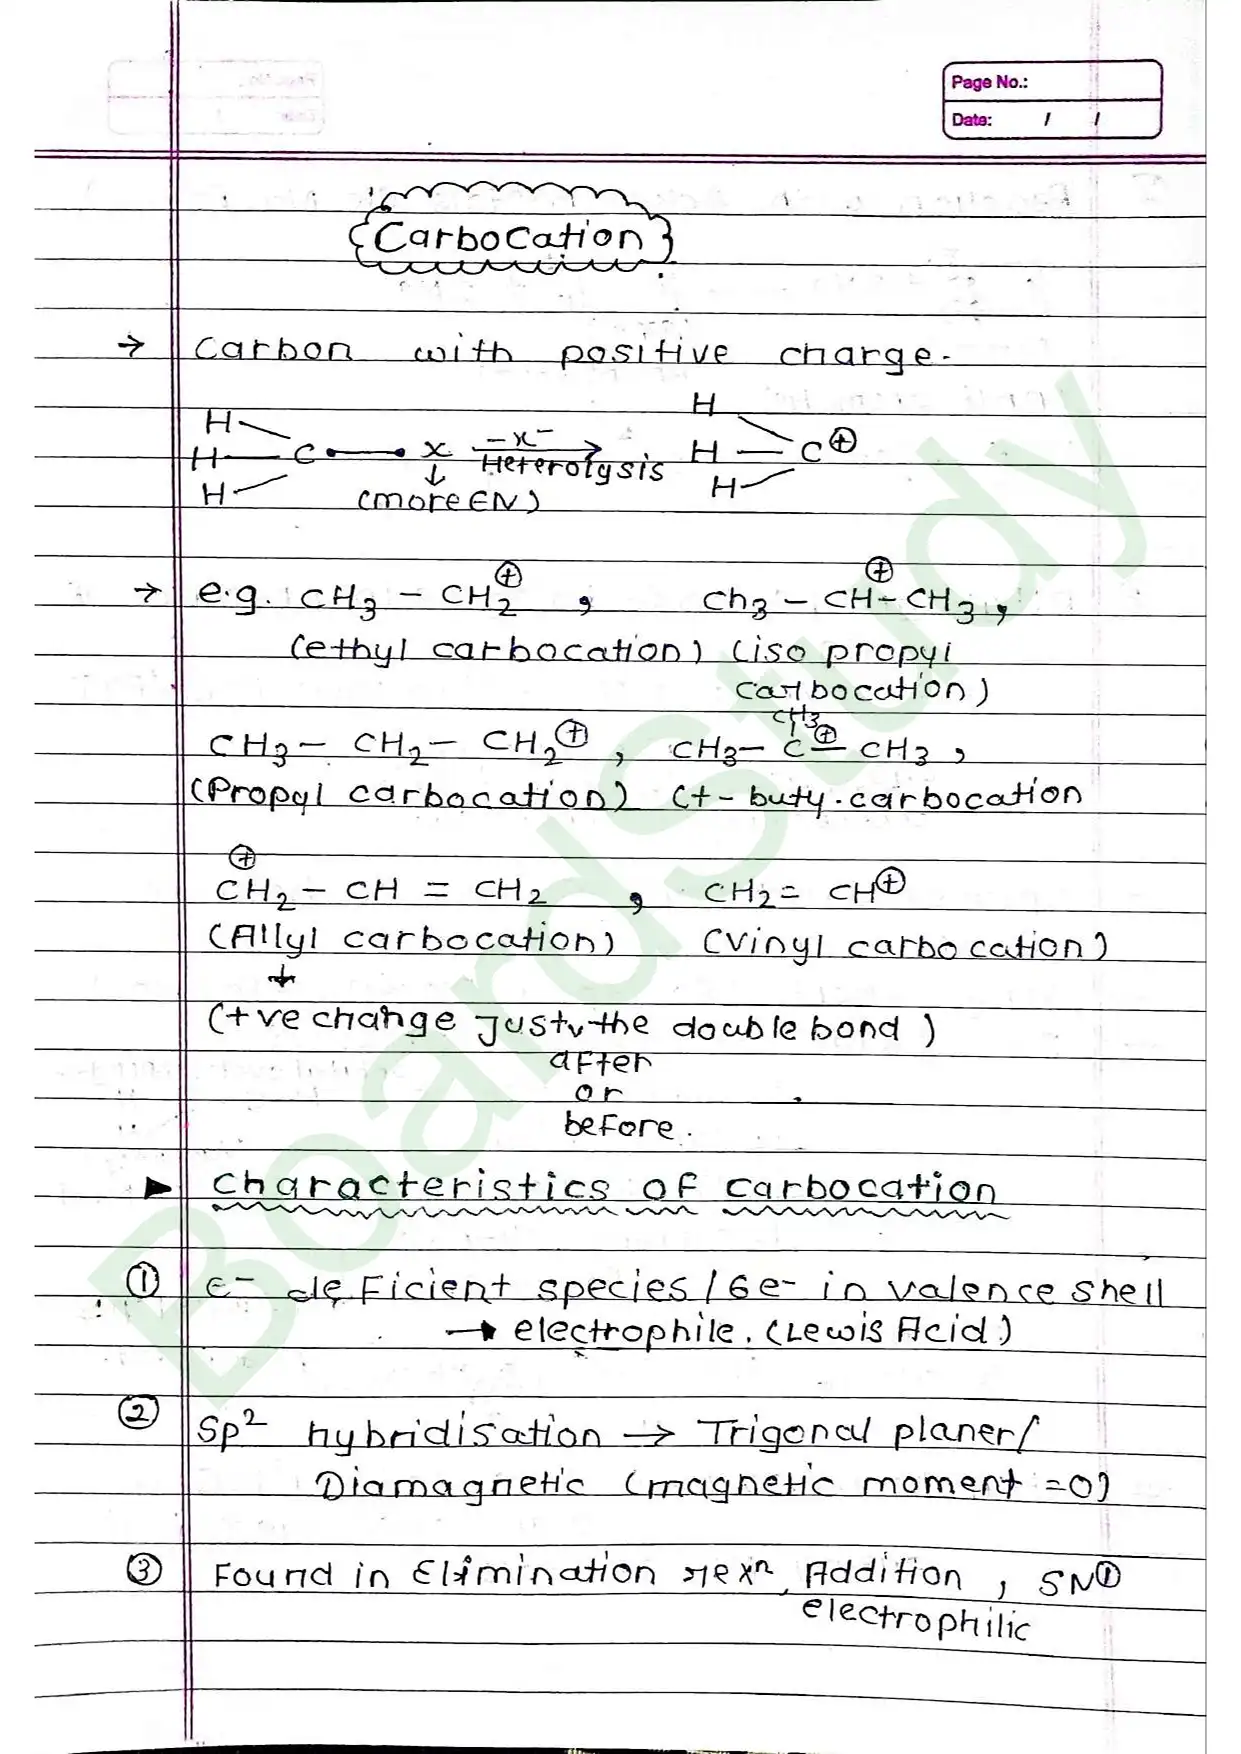 Page No.:
Date: / /
Carbocation
→ Carbon with positive charge.
H H
H — C •—• X -X⁻ → H — C⊕
H ↓ Heterolysis H
(more EN)
→ e.g. CH3 - CH2⊕ , Ch3 - CH⊕ - CH3 ,
(ethyl carbocation) (iso propyl
carbocation)
CH3
CH3 - CH2 - CH2⊕ , CH3 - C⊕ - CH3 ,
(Propyl carbocation) (t - buty. carbocation
⊕
CH2 - CH = CH2 , CH2 = CH⊕
(Allyl carbocation) (Vinyl carbocation)
↓
(+ve change Just the double bond)
after
or
before.
▶ Characteristics of carbocation
① e- deficient species / 6e- in valence shell
→ electrophile. (Lewis Acid)
② Sp² hybridisation → Trigonal planer/
Diamagnetic (magnetic moment = 0)
③ Found in Elimination rexⁿ, Addition , SN①
electrophilic
BoardStudy